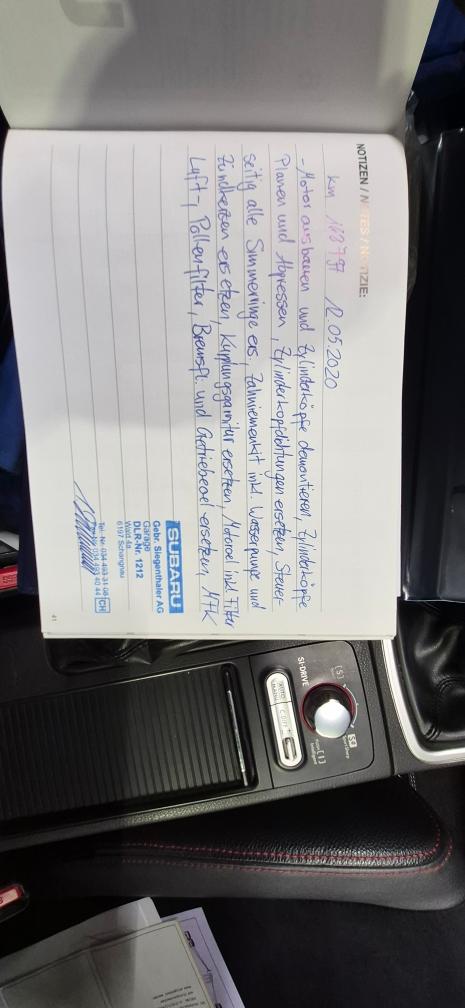 NOTIZEN / NOTES / NOTIZIE:
km 12.05.2020
- Motor ausbauen und Zylinderköpfe demontieren, Zylinderköpfe
Planen und Abpressen, Zylinderkopfdichtungen ersetzen, Steuer-
seitig alle Simmerringe ers, Zahnriemenkit inkl. Wasserpumpe und
Zündkerzen ersetzen, Kupplungsgarnitur ersetzen, Motoroel inkl Filter
Luft-, Pollenfilter, Bremsfl. und Getriebeoel ersetzen, MFK
SUBARU
Gebr. Siegenthaler AG
Garage
DLR-Nr. 1212
Wald 4a
6197 Schangnau
Tel.-Nr. 034 493 31 56 CH
034 493 40 44
41
SI-DRIVE
[S]
S#
[I]
AUTO
C.DIFF